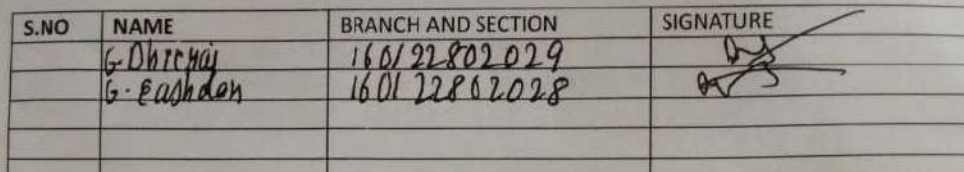 S.NO NAME BRANCH AND SECTION SIGNATURE
G. Dhichaj 160122802029
G. Eashdan 160122802028